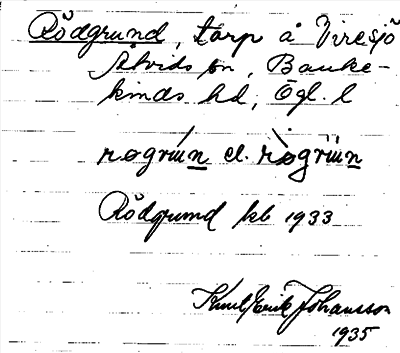 Rödgrund, torp å Viresjö
Åtvids sn, Banke-
kinds hd, Ögl. l
rogrün el. rògrün
Rödgrund kb 1933
Knut Erik Johansson
1935